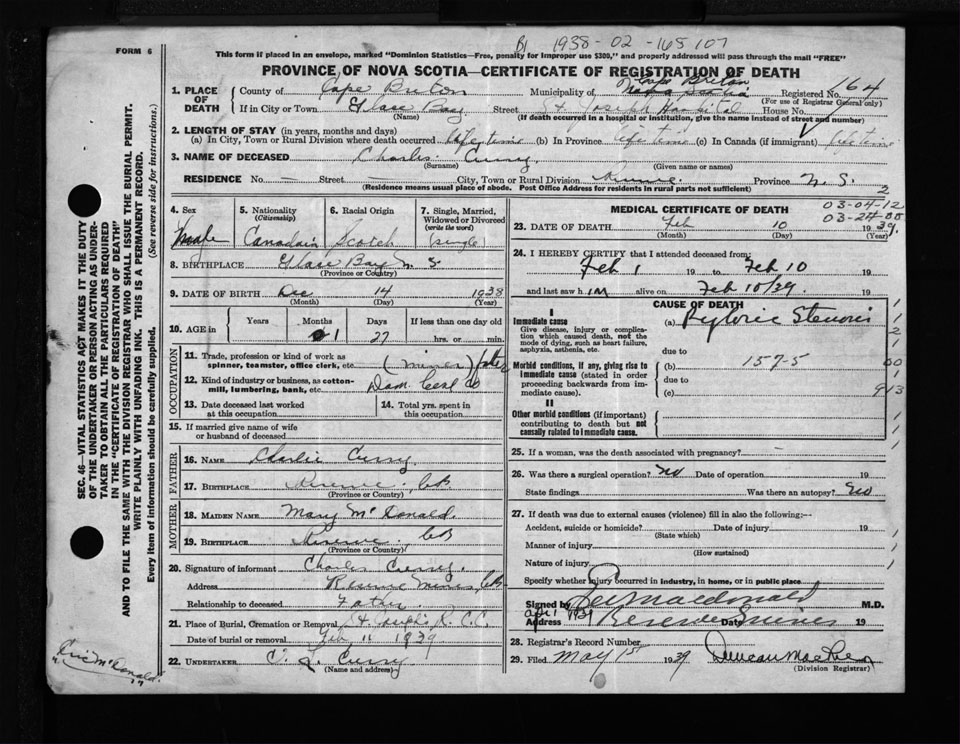 B1 1938-02-165107
FORM 6
This form if placed in an envelope, marked "Dominion Statistics—Free, penalty for improper use $300," and properly addressed will pass through the mail "FREE"
PROVINCE OF NOVA SCOTIA—CERTIFICATE OF REGISTRATION OF DEATH
1. PLACE OF DEATH County of Cape Breton Municipality of Cape Breton Nova Scotia Registered No. 164
(For use of Registrar General only)
If in City or Town Glace Bay Street St. Joseph Hospital House No.
(Name) (If death occurred in a hospital or institution, give the name instead of street and number)
2. LENGTH OF STAY (in years, months and days)
(a) In City, Town or Rural Division where death occurred life time (b) In Province life time (c) In Canada (if immigrant) life time
3. NAME OF DECEASED Charles Curry
(Surname) (Given name or names)
RESIDENCE No. — Street — City, Town or Rural Division Reserve Province N. S.
(Residence means usual place of abode. Post Office Address for residents in rural parts not sufficient) 2
4. Sex 5. Nationality (Citizenship) 6. Racial Origin 7. Single, Married, Widowed or Divorced (write the word)
Male Canadain Scotch (single
8. BIRTHPLACE Glace Bay N. S
(Province or Country)
9. DATE OF BIRTH Dec 14 1938
(Month) (Day) (Year)
10. AGE in Years Months Days If less than one day old
1 27 hrs. or min.
OCCUPATION
11. Trade, profession or kind of work as spinner, teamster, office clerk, etc. (miner) father
12. Kind of industry or business, as cotton-mill, lumbering, bank, etc. Dom. Coal Co
13. Date deceased last worked at this occupation
14. Total yrs. spent in this occupation
15. If married give name of wife or husband of deceased
FATHER
16. NAME Charlie Curry
17. BIRTHPLACE Reserve, CB
(Province or Country)
MOTHER
18. MAIDEN NAME Mary McDonald.
19. BIRTHPLACE Reserve CB
(Province or Country)
20. Signature of informant Charles Curry.
Address Reserve Mines, CB.
Relationship to deceased Father
21. Place of Burial, Cremation or Removal St. Joseph's R. C. C.
Date of burial or removal Feb 11 1939
22. UNDERTAKER C. L. Curry
(Name and address)
MEDICAL CERTIFICATE OF DEATH 03-04-12
03-24-00
23. DATE OF DEATH Feb 10 1939.
(Month) (Day) (Year)
24. I HEREBY CERTIFY that I attended deceased from:
Feb 1 19 to Feb 10 19
and last saw him alive on Feb 10/39. 19
CAUSE OF DEATH
I
Immediate cause (a) Pyloric Stenosis
Give disease, injury or complication which caused death, not the mode of dying, such as heart failure, asphyxia, asthenia, etc.
due to
Morbid conditions, if any, giving rise to immediate cause (stated in order proceeding backwards from immediate cause) (b) 157-5
due to
(c) 913
II
Other morbid conditions (if important) contributing to death but not causally related to immediate cause.
25. If a woman, was the death associated with pregnancy?
26. Was there a surgical operation? no Date of operation 19
State findings Was there an autopsy? no
27. If death was due to external causes (violence) fill in also the following:—
Accident, suicide or homicide? Date of injury 19
(State which)
Manner of injury
(How sustained)
Nature of injury
Specify whether injury occurred in industry, in home, or in public place
Signed by Macdonald M.D.
Apr 1 1939
Address Reserve Mines 19
28. Registrar's Record Number
29. Filed May 1st 1939 Duncan
(Division Registrar)
SEC. 46—VITAL STATISTICS ACT MAKES IT THE DUTY OF THE UNDERTAKER OR PERSON ACTING AS UNDERTAKER TO OBTAIN ALL THE PARTICULARS REQUIRED IN THE "CERTIFICATE OF REGISTRATION OF DEATH" AND TO FILE THE SAME WITH THE DIVISION REGISTRAR WHO SHALL ISSUE THE BURIAL PERMIT.
WRITE PLAINLY WITH UNFADING INK. THIS IS A PERMANENT RECORD.
Every item of information should be carefully supplied. (See reverse side for instructions.)
McDonald